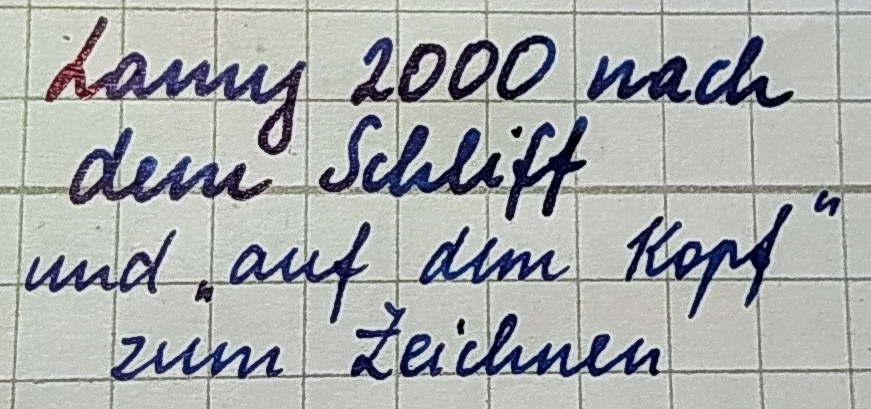 Lamy 2000 nach
dem Schliff
und „auf dem Kopf“
zum Zeichnen